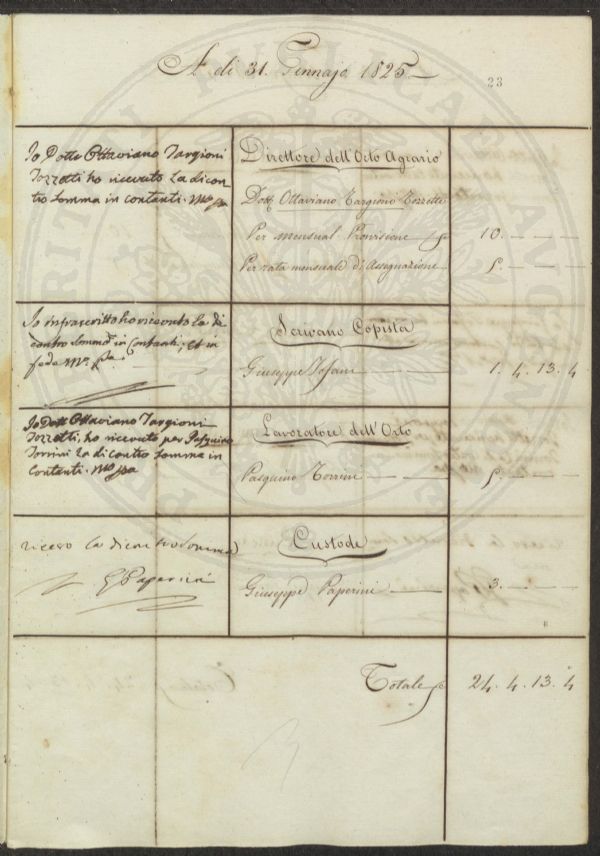 A dì 31. Gennajo 1825
23
Io Dotte Ottaviano Targioni
Tozzetti ho ricevuto La dicon
tro Somma in contanti. Mo pa
Direttore dell'Orto Agrario
Dott. Ottaviano Targioni Tozzetti
Per mensual Provisione 10. — —
Per rata mensuale di Assegnazione 5. — —
Io infrascritto ho ricevuto la di
contro Somma in Contanti, et in
fede
Scrivano Copista
Giuseppe 1. 4. 13. 4
Io Dott Ottaviano Targioni
Tozzetti, ho ricevuto per Pasquino
Torrini La dicontro Somma in
Contanti. Mo pa
Lavoratore dell'Orto
Pasquino Torrini 5. — —
ricevo la dicontro somma
G Paperini
Custode
Giuseppe Paperini 3. — —
Totale 24. 4. 13. 4